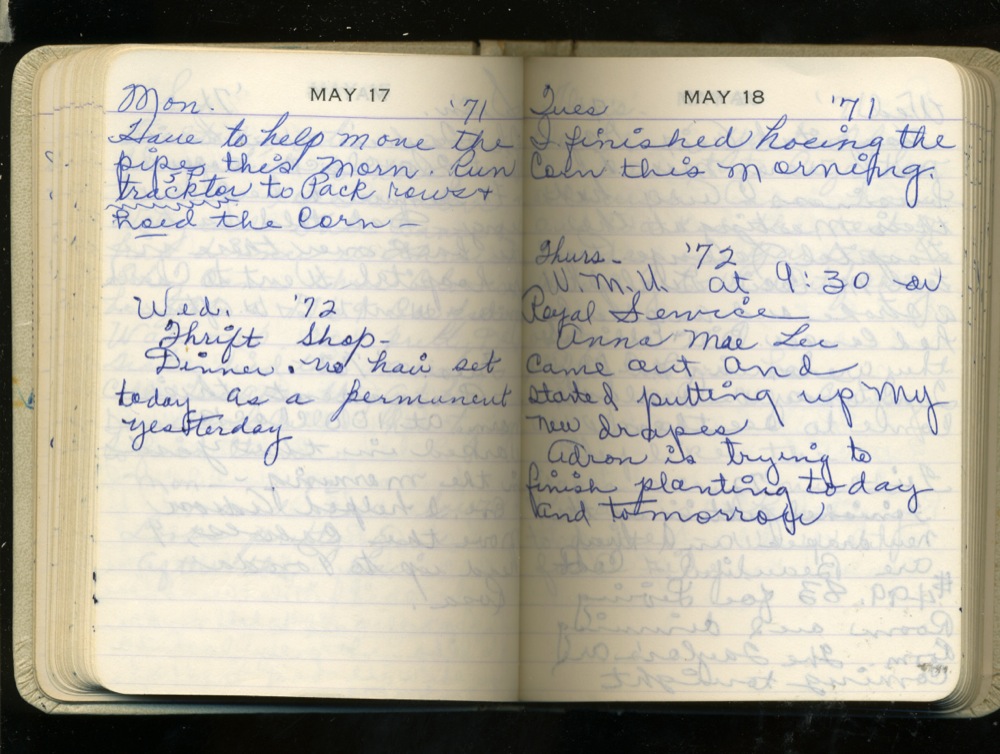 MAY 17
Mon. '71
Have to help move the
pipes this morn. Run
tracktor to Pack rows +
hoed the Corn -
Wed. '72
Thrift Shop -
Dinner. no hair set
today as a permanent
yesterday
MAY 18
Tues '71
I finished hoeing the
Corn this morning.
Thurs - '72
W.M.U. at 9:30 on
Royal Service
Anna Mae Lee
came out and
started putting up my
new drapes
Adron is trying to
finish planting today
and tomorrow